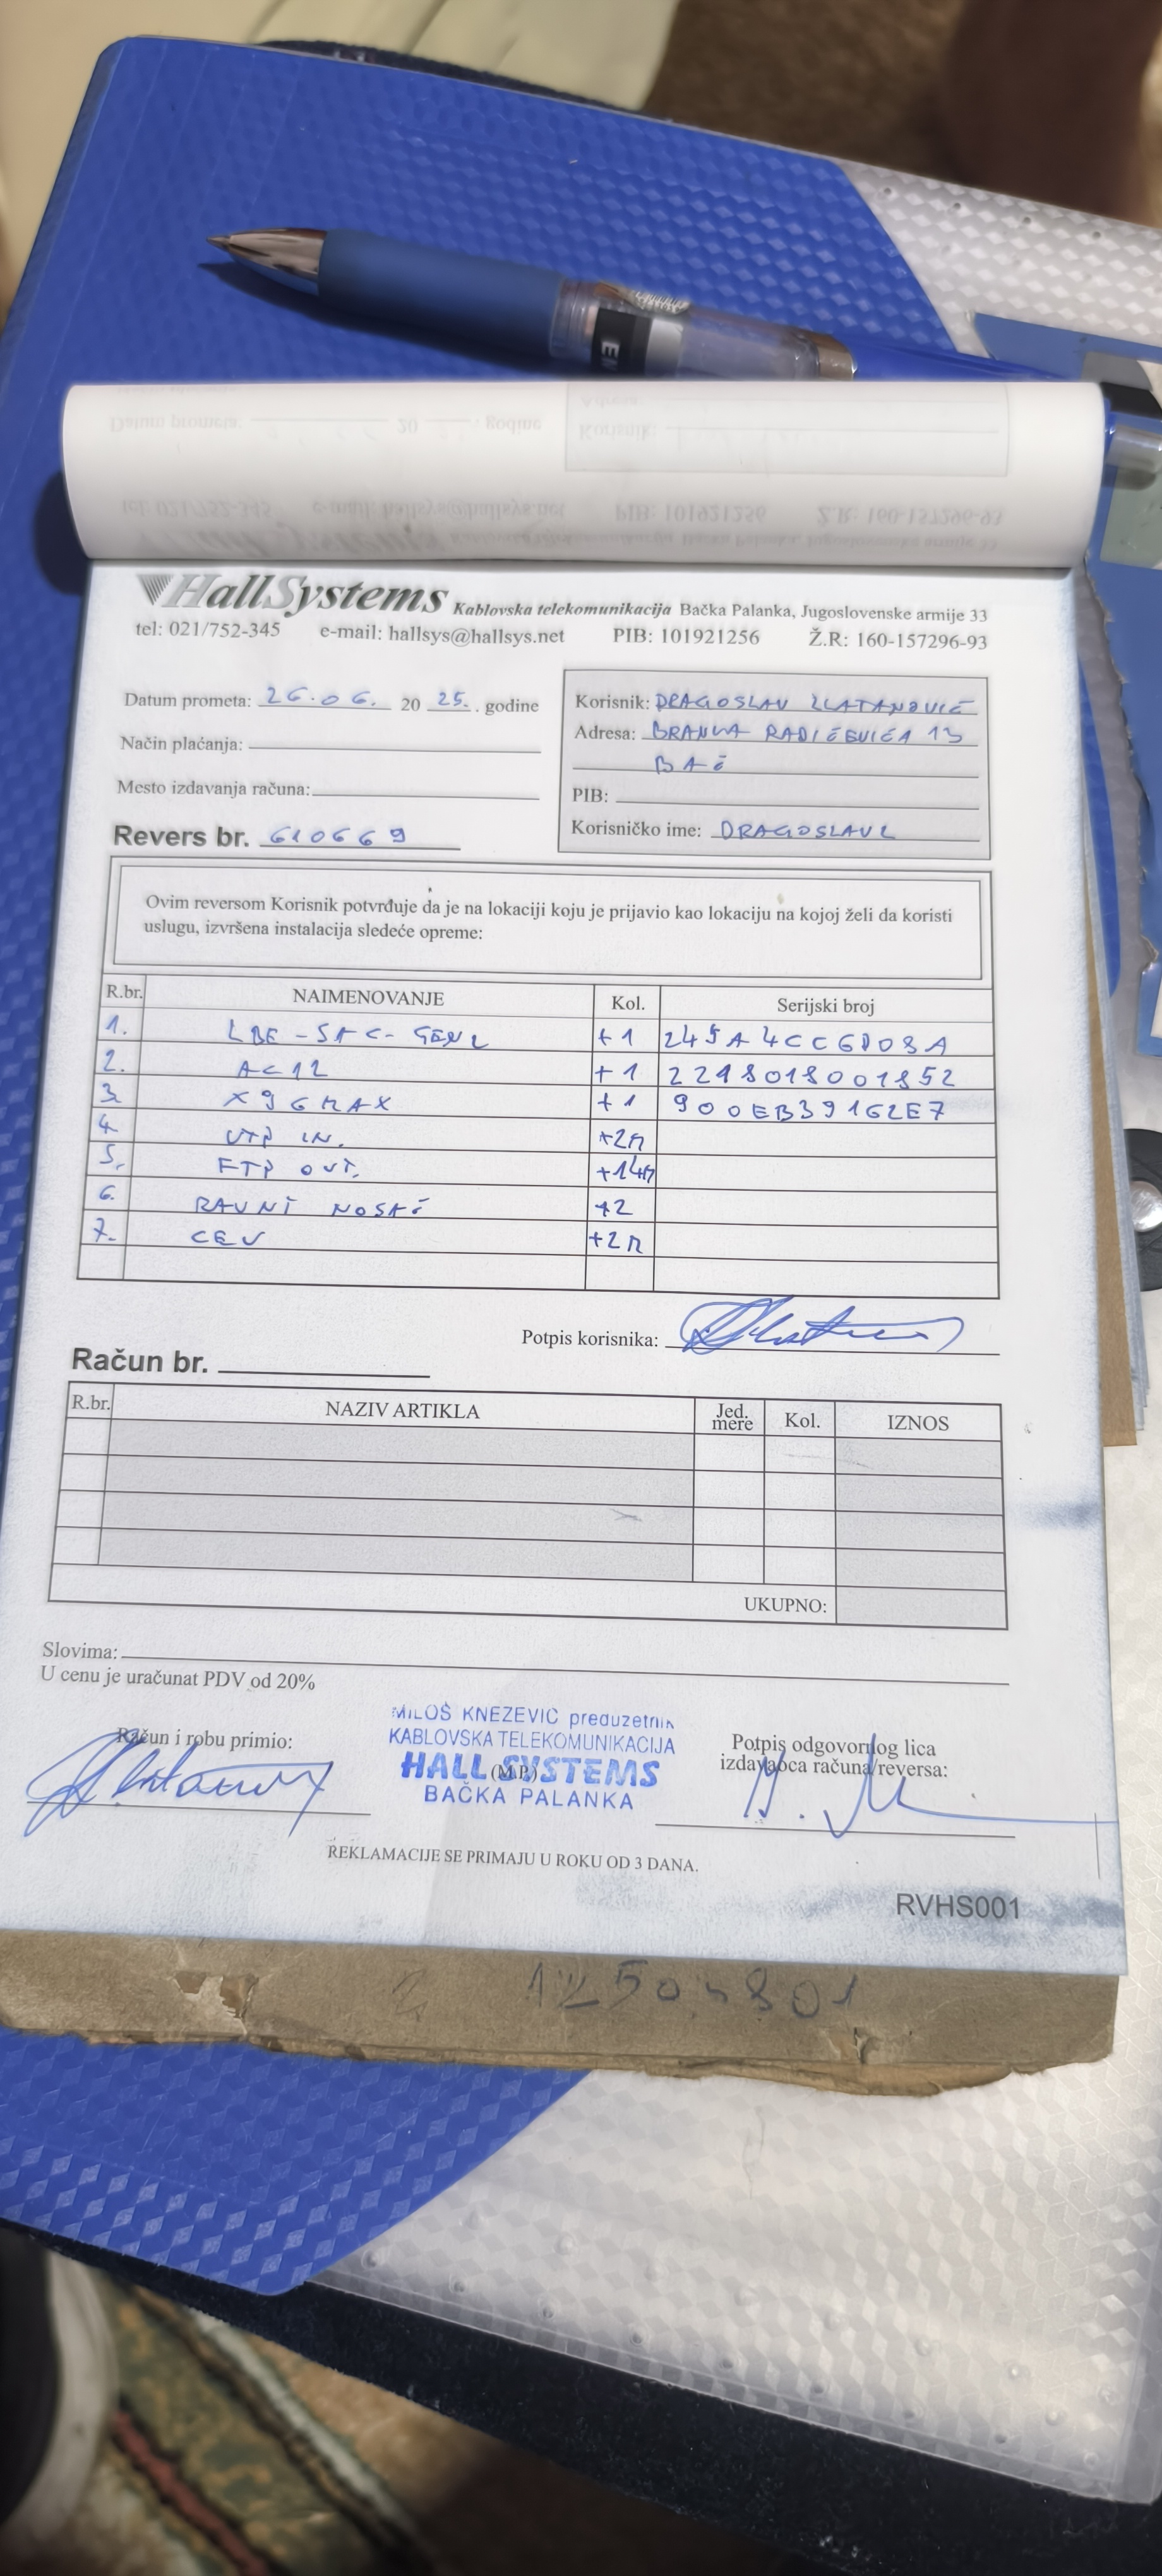 HallSystems Kablovska telekomunikacija Bačka Palanka, Jugoslovenske armije 33
tel: 021/752-345 e-mail: hallsys@hallsys.net PIB: 101921256 Ž.R: 160-157296-93
Datum prometa: 26.06. 20 25. godine
Način plaćanja:
Mesto izdavanja računa:
Revers br. 610669
Korisnik: DRAGOSLAV ZLATANOVIĆ
Adresa: BRANKA RADIČEVIĆA 13
BAČ
PIB:
Korisničko ime: DRAGOSLAVZ
Ovim reversom Korisnik potvrđuje da je na lokaciji koju je prijavio kao lokaciju na kojoj želi da koristi
uslugu, izvršena instalacija sledeće opreme:
R.br. NAIMENOVANJE Kol. Serijski broj
1. LBE-5AC-GEN2 +1 245A4CC6D08A
2. AC12 +1 2218018001852
3. X96MAX +1 900EB39162E7
4. UTP IN. +2m
5. FTP OUT. +14m
6. RAVNI NOSAČ +2
7. CEV +2m
Potpis korisnika:
Račun br.
R.br. NAZIV ARTIKLA Jed. mere Kol. IZNOS
UKUPNO:
Slovima:
U cenu je uračunat PDV od 20%
Račun i robu primio:
MILOŠ KNEŽEVIĆ preduzetnik
KABLOVSKA TELEKOMUNIKACIJA
HALL SYSTEMS
(M.P.)
BAČKA PALANKA
Potpis odgovornog lica
izdavaoca računa/reversa:
REKLAMACIJE SE PRIMAJU U ROKU OD 3 DANA.
RVHS001